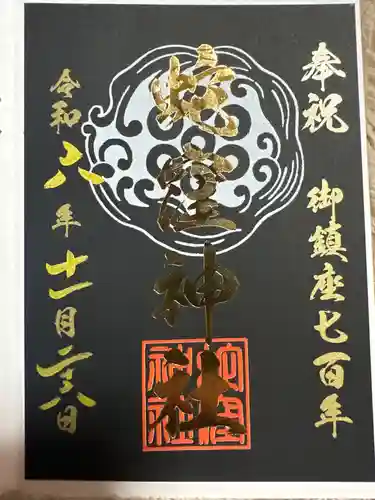 奉祝 御鎮座七百年
蛇窪神社
令和六年十一月二十八日